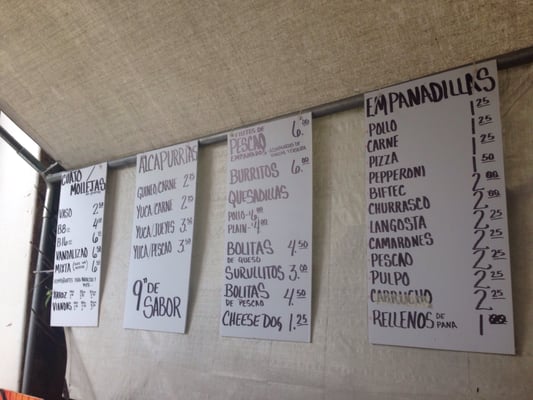 CUAJO/
MOLLEJAS
VASO 2.50
8oz 4.00
16oz 6.75
VANDALIZAO 6.50
MIXTA 6.50
ARROZ
VIANDAS
ALCAPURRIAS
GUINEO/CARNE 2.75
YUCA/CARNE 2.75
YUCA/JUEYES 3.50
YUCA/PESCAO 3.50
9" DE
SABOR
FILETES DE 6.00
PESCAO
EMPANADOS
BURRITOS 6.00
QUESADILLAS
POLLO- 6.00
PLAIN- 4.00
BOLITAS 4.50
DE QUESO
SURULLITOS 3.00
BOLITAS 4.50
DE PESCAO
CHEESE DOG 1.25
EMPANADILLAS
POLLO 1.25
CARNE 1.25
PIZZA 1.25
PEPPERONI 1.50
BIFTEC 2.00
CHURRASCO 2.25
LANGOSTA 2.25
CAMARONES 2.25
PESCAO 2.25
PULPO 2.25
CARRUCHO 2.25
RELLENOS DE PANA 1.00